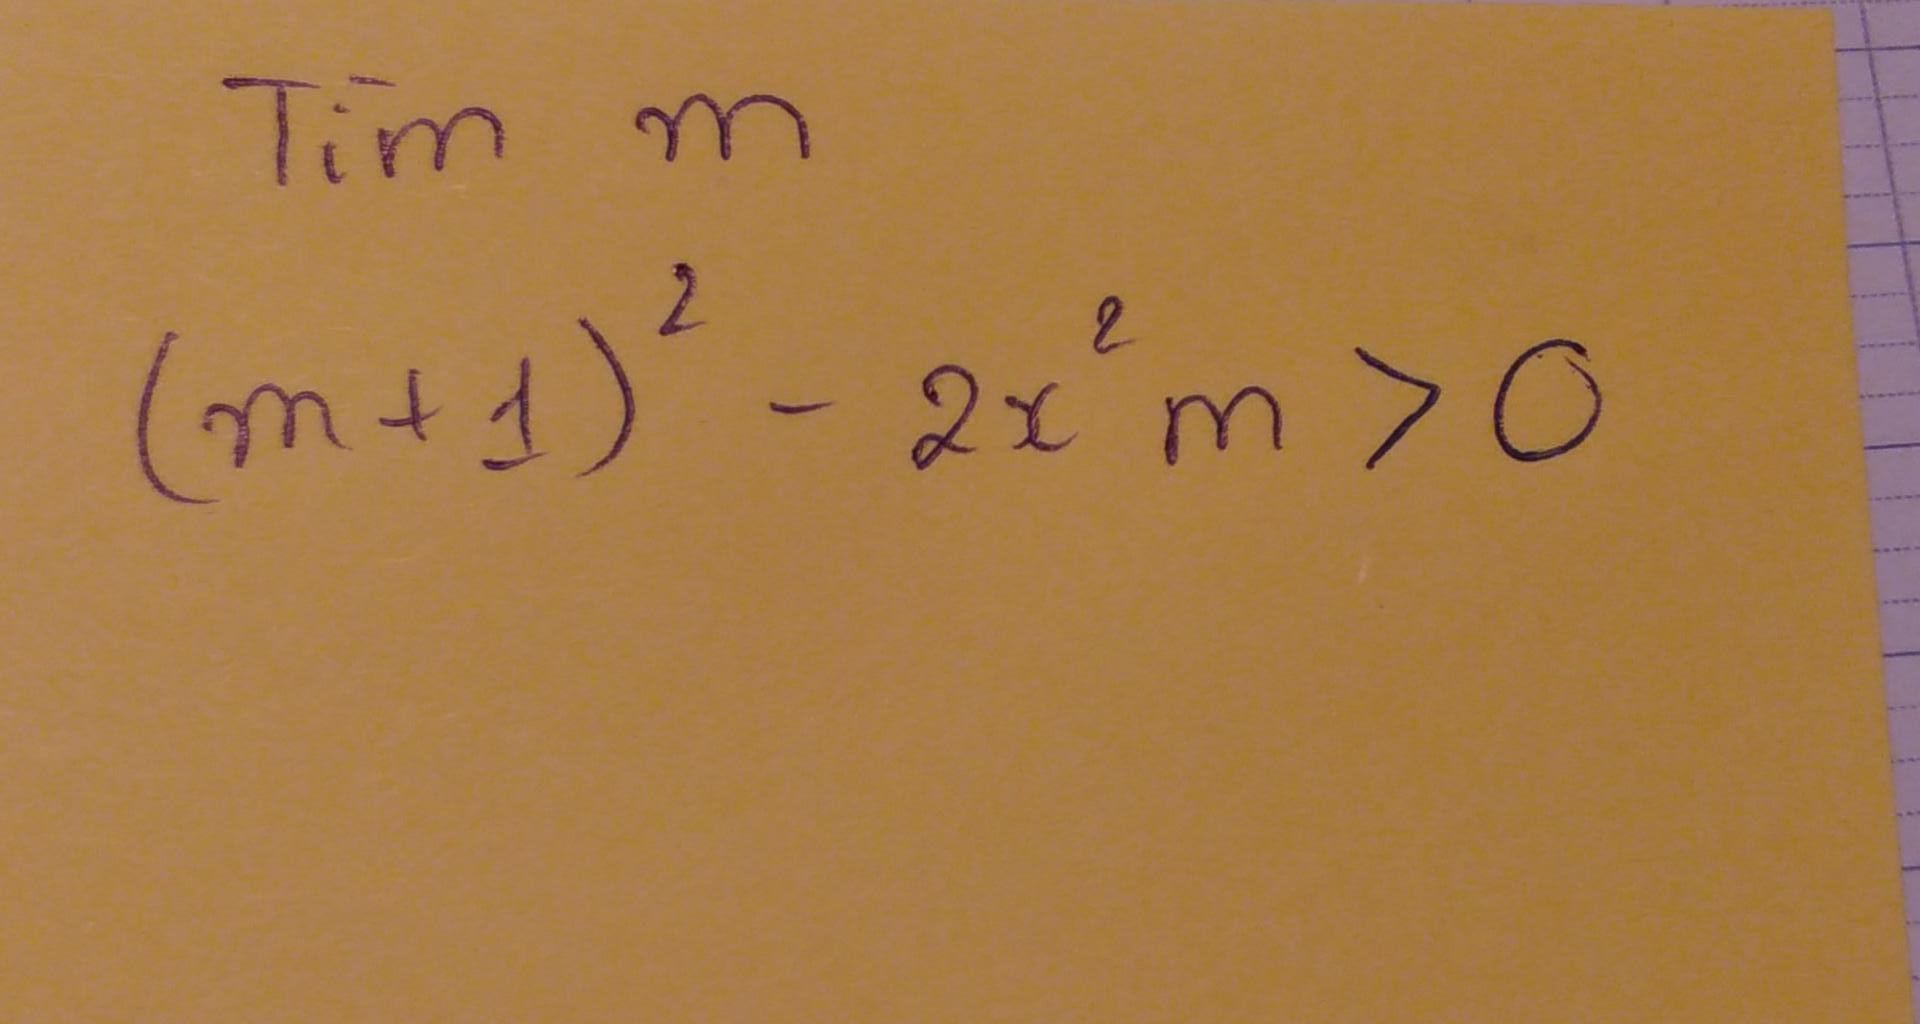 Tìm m
(m+1)² - 2x²m > 0